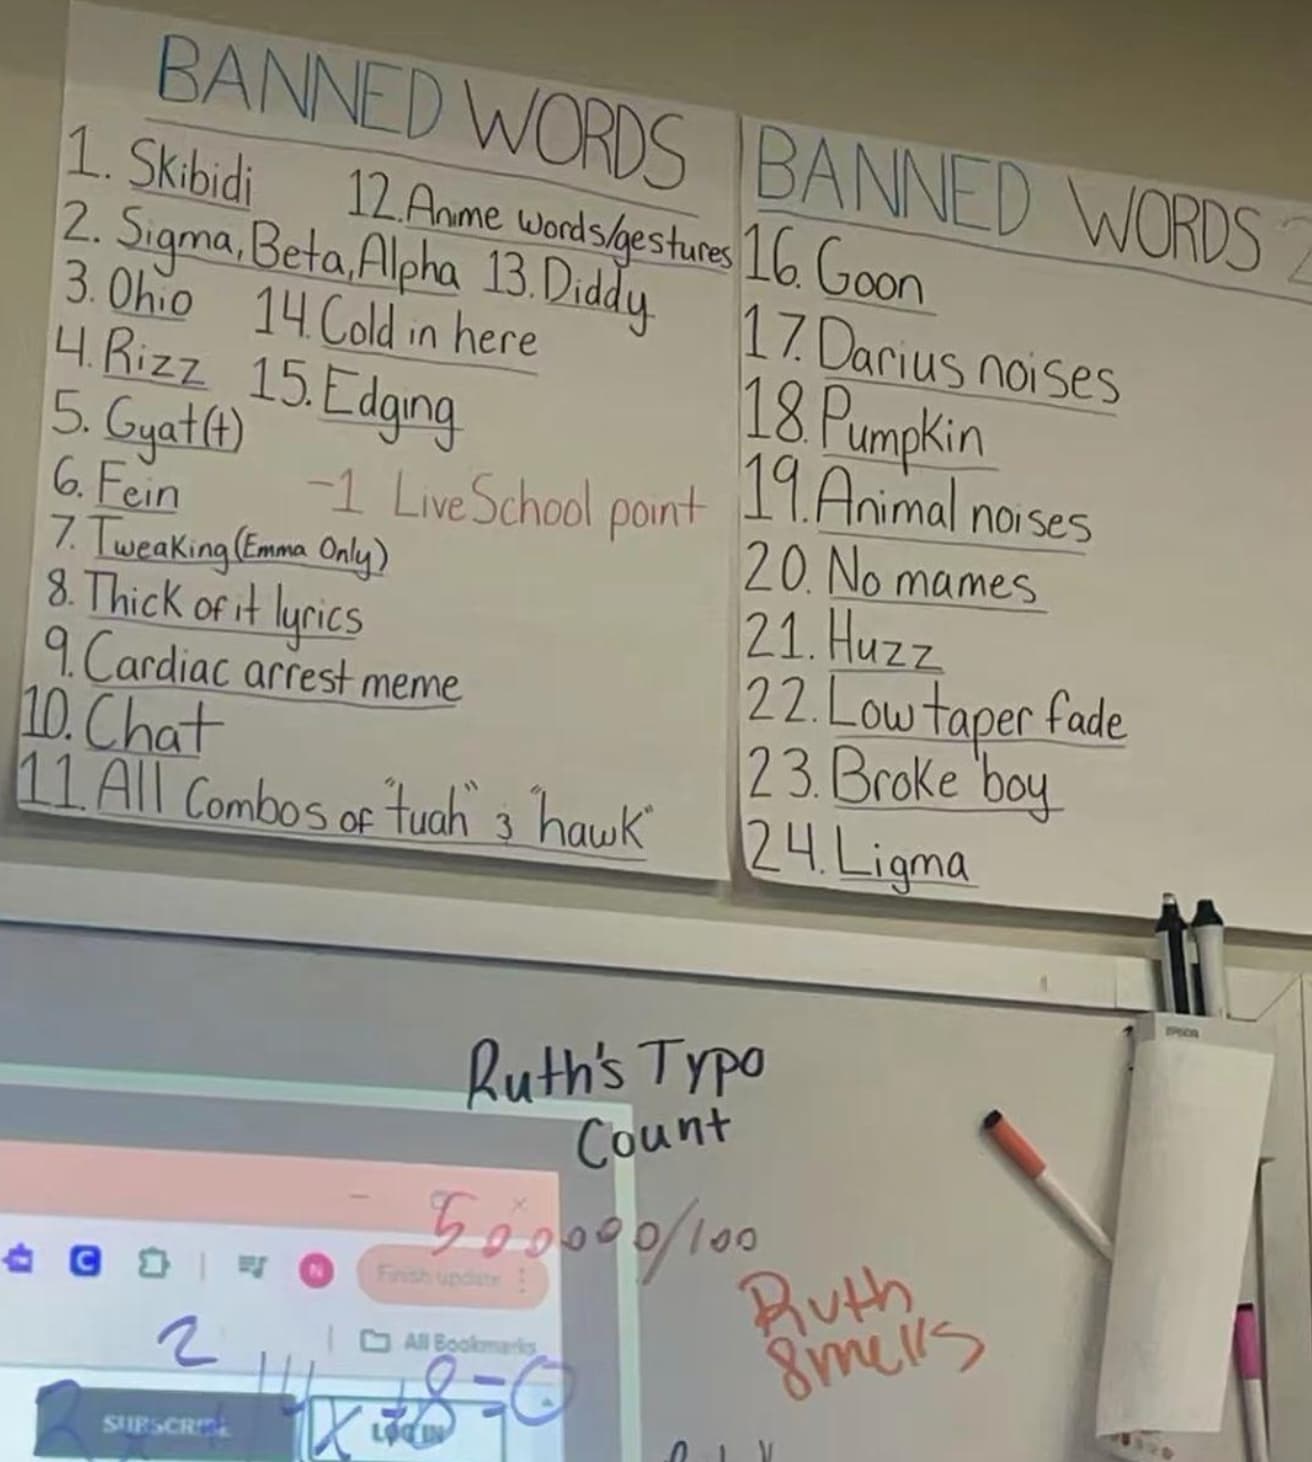 BANNED WORDS
1. Skibidi
2. Sigma, Beta, Alpha
3. Ohio
4. Rizz
5. Gyat(t)
6. Fein
7. Tweaking (Emma Only)
8. Thick of it lyrics
9. Cardiac arrest meme
10. Chat
11. All Combos of "tuah" & "hawk"
12. Anime words/gestures
13. Diddy
14. Cold in here
15. Edging
-1 LiveSchool point
BANNED WORDS 2
16. Goon
17. Darius noises
18. Pumpkin
19. Animal noises
20. No mames
21. Huzz
22. Low taper fade
23. Broke boy
24. Ligma
EPSON
Ruth's Typo
Count
500000/100
Ruth
smells
N
Finish update
All Bookmarks
2
x+8=0
SUBSCRIBE
LOG IN